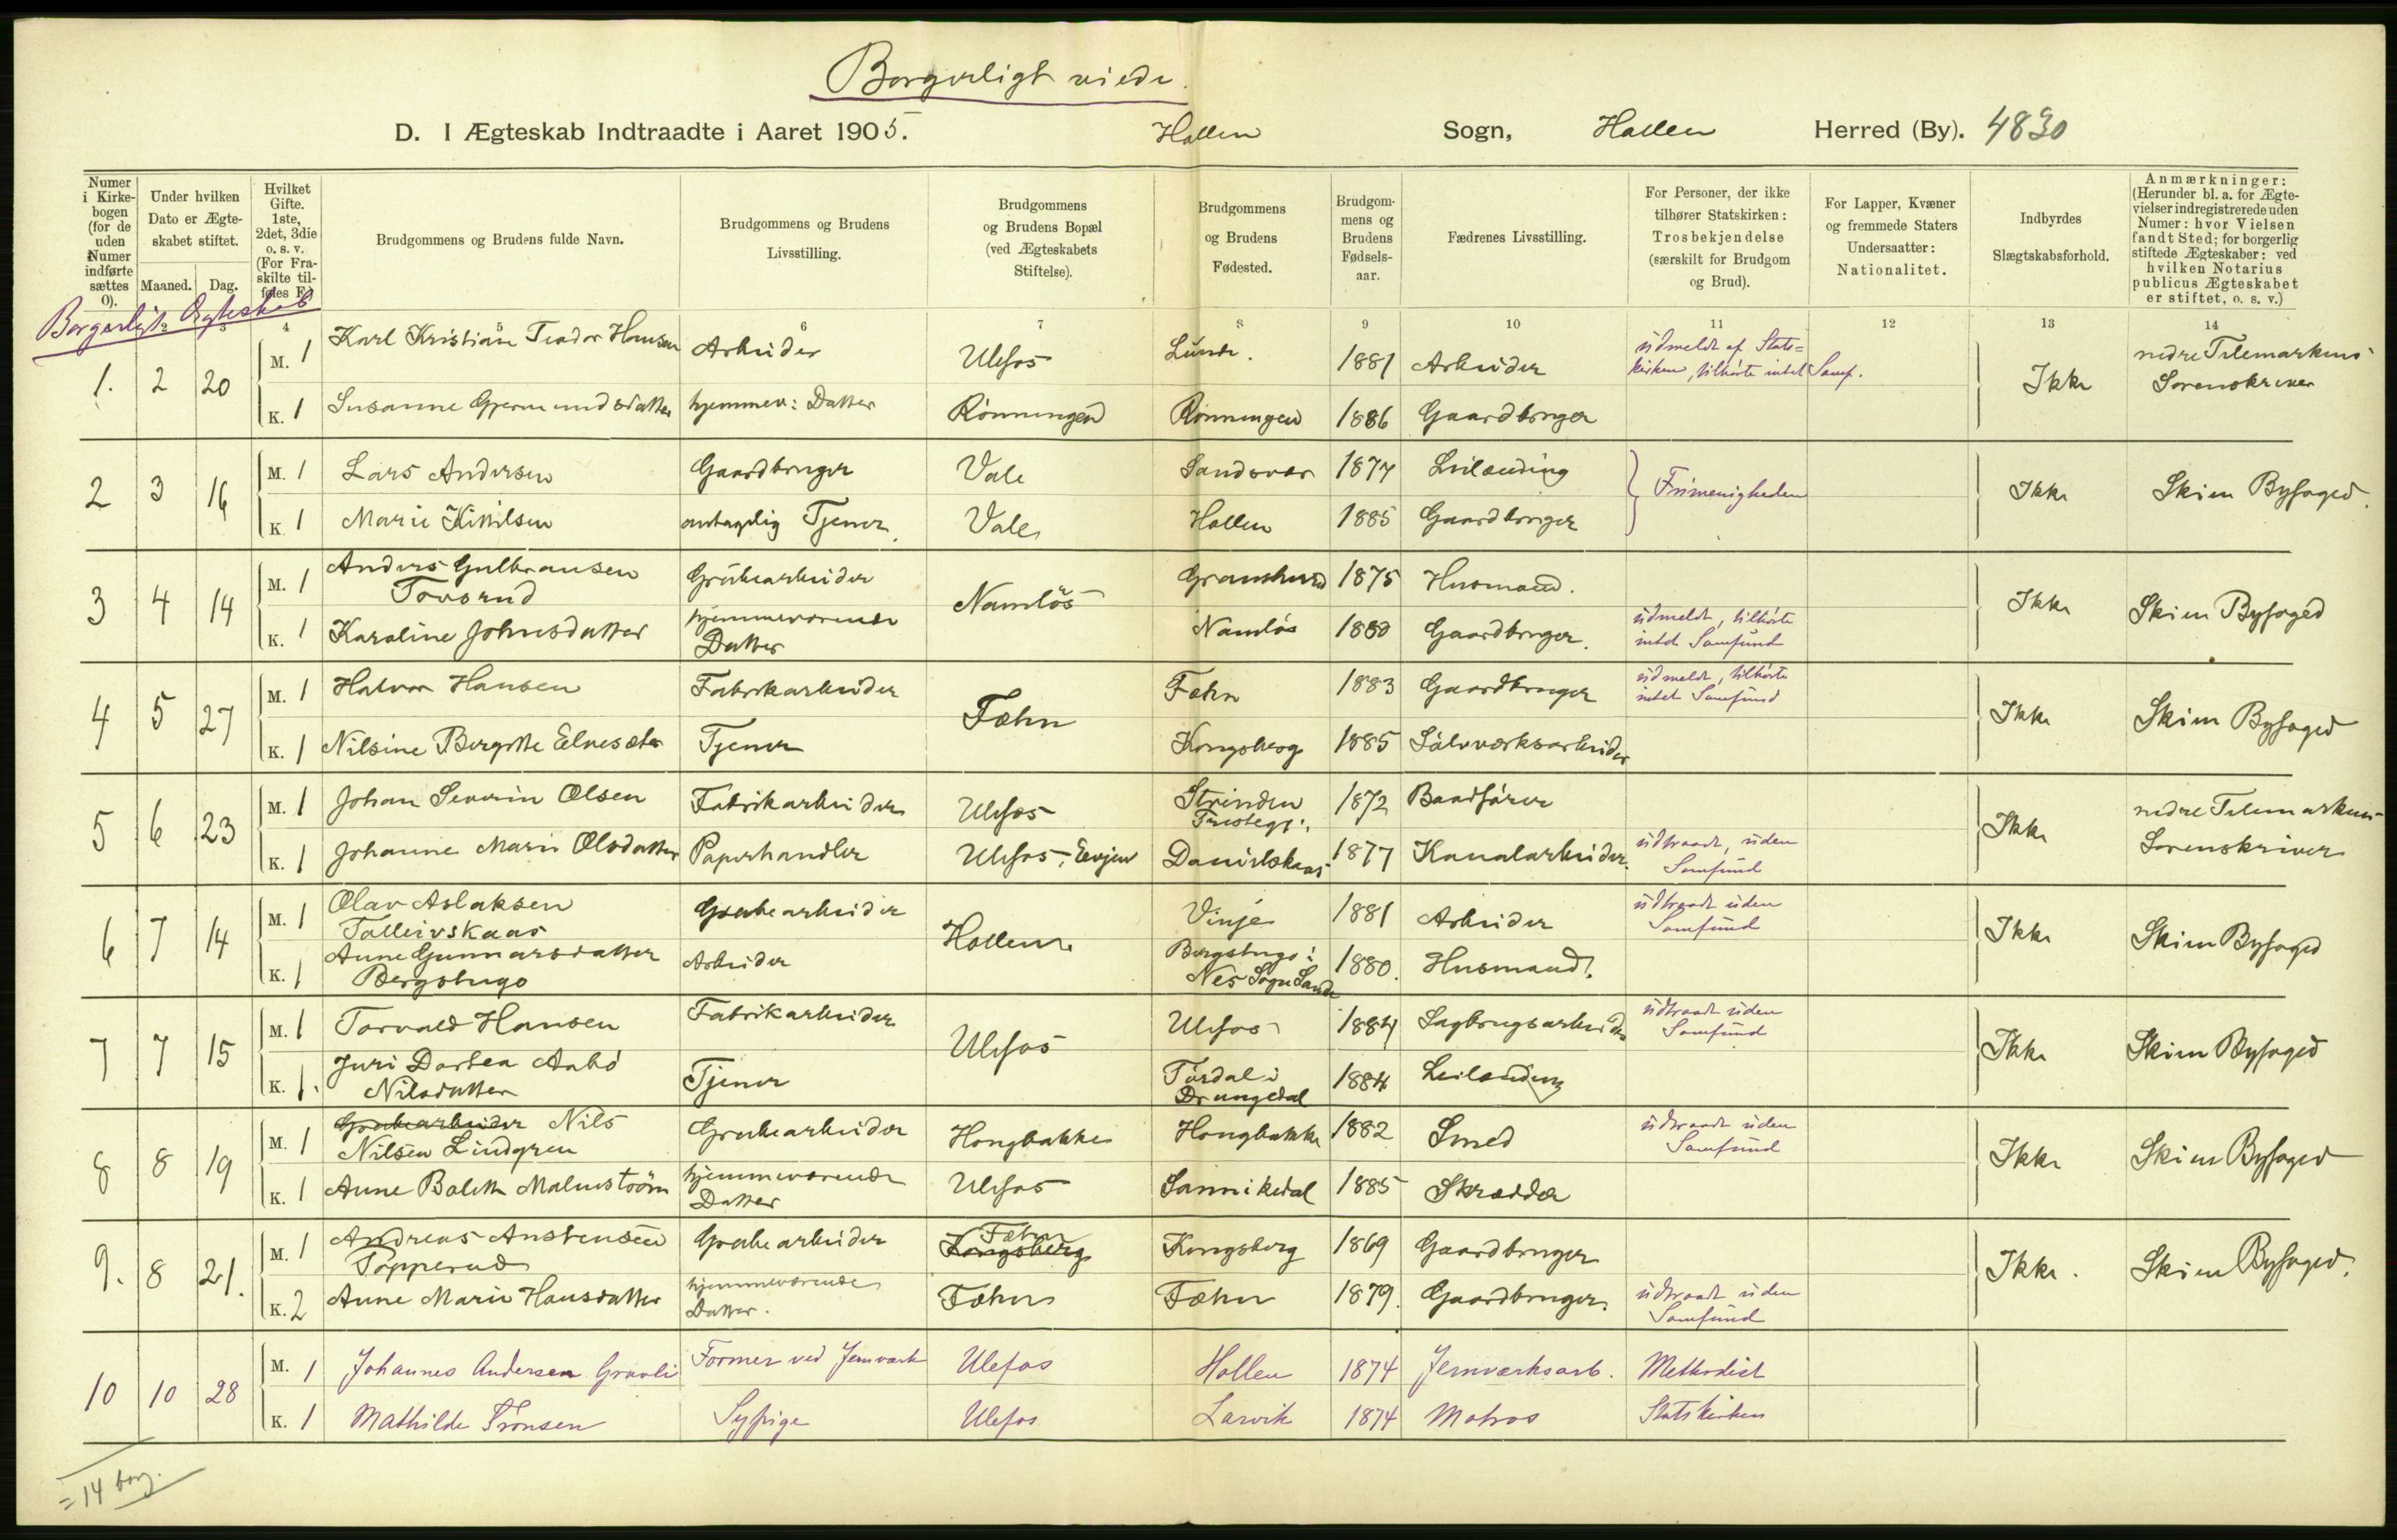 Borgerligt viede.
D. I Ægteskab Indtraadte i Aaret 1905. Hollen Sogn, Hollen Herred (By). 4830
Numer i Kirkebogen (for de uden Numer indførte sættes 0).
Under hvilken Dato er Ægteskabet stiftet.
Maaned. Dag.
Hvilket Gifte. 1ste, 2det, 3die o. s. v. (For Fraskilte tilføies F.)
Brudgommens og Brudens fulde Navn.
Brudgommens og Brudens Livsstilling.
Brudgommens og Brudens Bopæl (ved Ægteskabets Stiftelse).
Brudgommens og Brudens Fødested.
Brudgommens og Brudens Fødselsaar.
Fædrenes Livsstilling.
For Personer, der ikke tilhører Statskirken: Trosbekjendelse (særskilt for Brudgom og Brud).
For Lapper, Kvæner og fremmede Staters Undersaatter: Nationalitet.
Indbyrdes Slægtskabsforhold.
Anmærkninger: (Herunder bl. a. for Ægtevielser indregistrerede uden Numer: hvor Vielsen fandt Sted; for borgerlig stiftede Ægteskaber: ved hvilken Notarius publicus Ægteskabet er stiftet, o. s. v.)
Borgerligt Ægteskab
2 3 4 5 6 7 8 9 10 11 12 13 14
1. 2 20 M. 1 Karl Kristian Teodor Hansen Arbeider Ulefos Lunde. 1881 Arbeider udmeldt af Stats= kirken, tilhørte intet Samf. Ikke nedre Telemarkens Sorenskriver
K. 1 Susanne Gjermundsdatter hjemmev: Datter Rønningen Rønningen 1886 Gaardbruger
2 3 16 M. 1 Lars Andersen Gaardbruger Vale Sandsvær 1877 Leilænding Frimenigheden Ikke Skien Byfoged.
K. 1 Marie Kittilsen antagelig Tjener. Vale Hollen 1885 Gaardbruger
3 4 14 M. 1 Anders Gulbransen Tovsrud Grubearbeider Namløs Gransherred 1875 Husmand. Ikke Skien Byfoged
K. 1 Karoline Johnsdatter hjemmeværende Datter Namløs 1880 Gaardbruger. udmeldt, tilhørte intet Samfund
4 5 27 M. 1 Halvor Hansen Fabrikarbeider Fæhn Fæhn 1883 Gaardbruger udmeldt, tilhørte intet Samfund Ikke Skien Byfoged
K. 1 Nilsine Bergitte Elvesæter Tjener Kongsberg 1885 Sølvværksarbeider
5 6 23 M. 1 Johan Severin Olsen Fabrikarbeider Ulefos Strinden 1872 Baadfører Ikke nedre Telemarkens Sorenskriver
K. 1 Johanne Marie Olsdatter Papirhandler Ulefos, Eevjen 1877 Kanalarbeider. udtraadt, uden Samfund
6 7 14 M. 1 Olav Aslaksen Tolleivskaas Grubearbeider Hollen. Vinje 1881 Arbeider udtraadt uden Samfund Ikke Skien Byfoged
K. 1 Anne Gunnarsdatter Bergstugo Arbeider Bergstugo i Nes Sogn Saude 1880. Husmand.
7 7 15 M. 1 Torvald Hansen Fabrikarbeider Ulefos Ulefos 1884 Sagbrugsarbeider udtraadt uden Samfund Ikke Skien Byfoged
K. 1. Juri Dortea Aabø Nilsdatter Tjener Tørdal i Drangedal 1884 Leilænding
8 8 19 M. 1 Grubearbeider Nils Nilsen Lindgren Grubearbeider Hongbakke Hongbakke 1882 Smed udtraadt uden Samfund Ikke Skien Byfoged
K. 1 Anne Bolette Malmstrøm hjemmeværende Datter Ulefos Sannikedal 1885 Skrædder
9. 8 21. M. 1 Andreas Anstensen Topperud Grubearbeider Fæhn Kongsberg Kongsberg 1869 Gaardbruger Ikke. Skien Byfoged.
K. 2 Anne Marie Hansdatter hjemmeværende Datter. Fæhn Fæhn 1879. Gaardbruger. udtraadt uden Samfund
10 10 28 M. 1 Johannes Andersen Gravli Former ved Jernværk Ulefos Hollen 1874 Jernværksarb. Methodist
K. 1 Mathilde Tronsen Sypige Ulefos Larvik 1874 Matros Statskirken
= 14 borg.